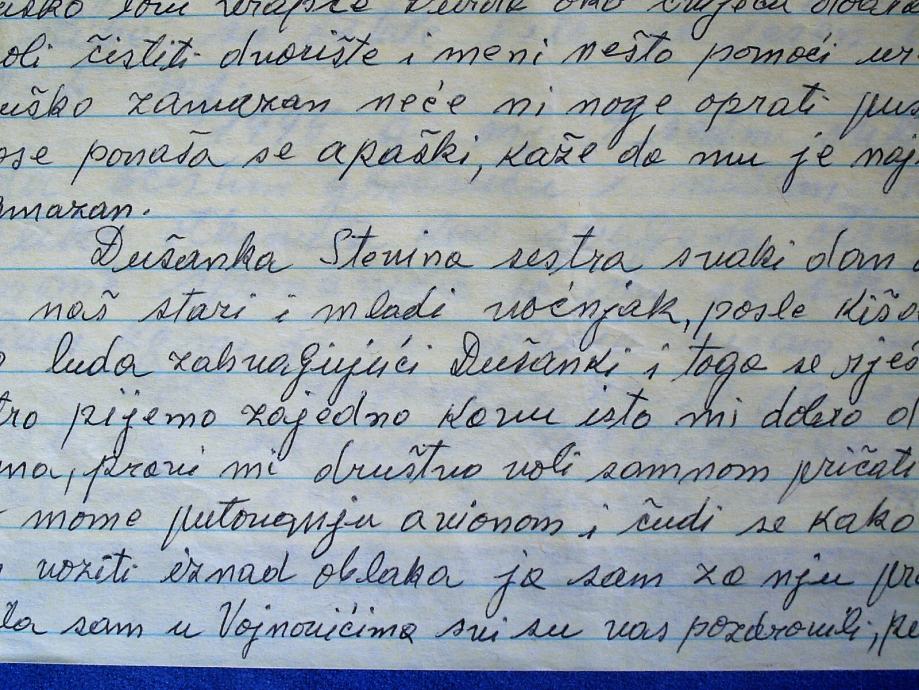 oli čistiti dvorište i meni nešto pomoći
uško zamazan neće ni noge oprati
ponaša se apaški, kaže da mu je naj
mazan.
Dušanka Stevina sestra svaki dan
naš stari i mladi voćnjak, posle kiša
luda zahvagujući Dušanki i toga se rješ
tro pijemo zajedno kavu isto mi dobro
ma, pravi mi društvo voli samnom pričati
mome putovanju avionom i čudi se kako
voziti iznad oblaka ja sam za nju
la sam u Vojnovićima svi su vas pozdravili,